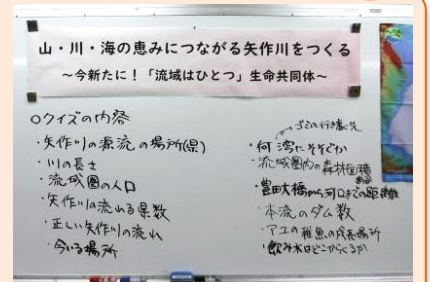 山・川・海の恵みにつながる矢作川をつくる
～今新たに！「流域はひとつ」生命共同体～
○クイズの内容
・矢作川の源流の場所(県)
・川の長さ
・流域圏の人口
・矢作川の流れる県数
・正しい矢作川の流れ
・今いる場所
ゴミの行き着く先
・何湾にそそぐか
・流域圏内の森林面積
割合
・豊田大橋から河口までの距離
・本流のダム数
・アユの稚魚の成長場所
・飲み水はどこからくるか